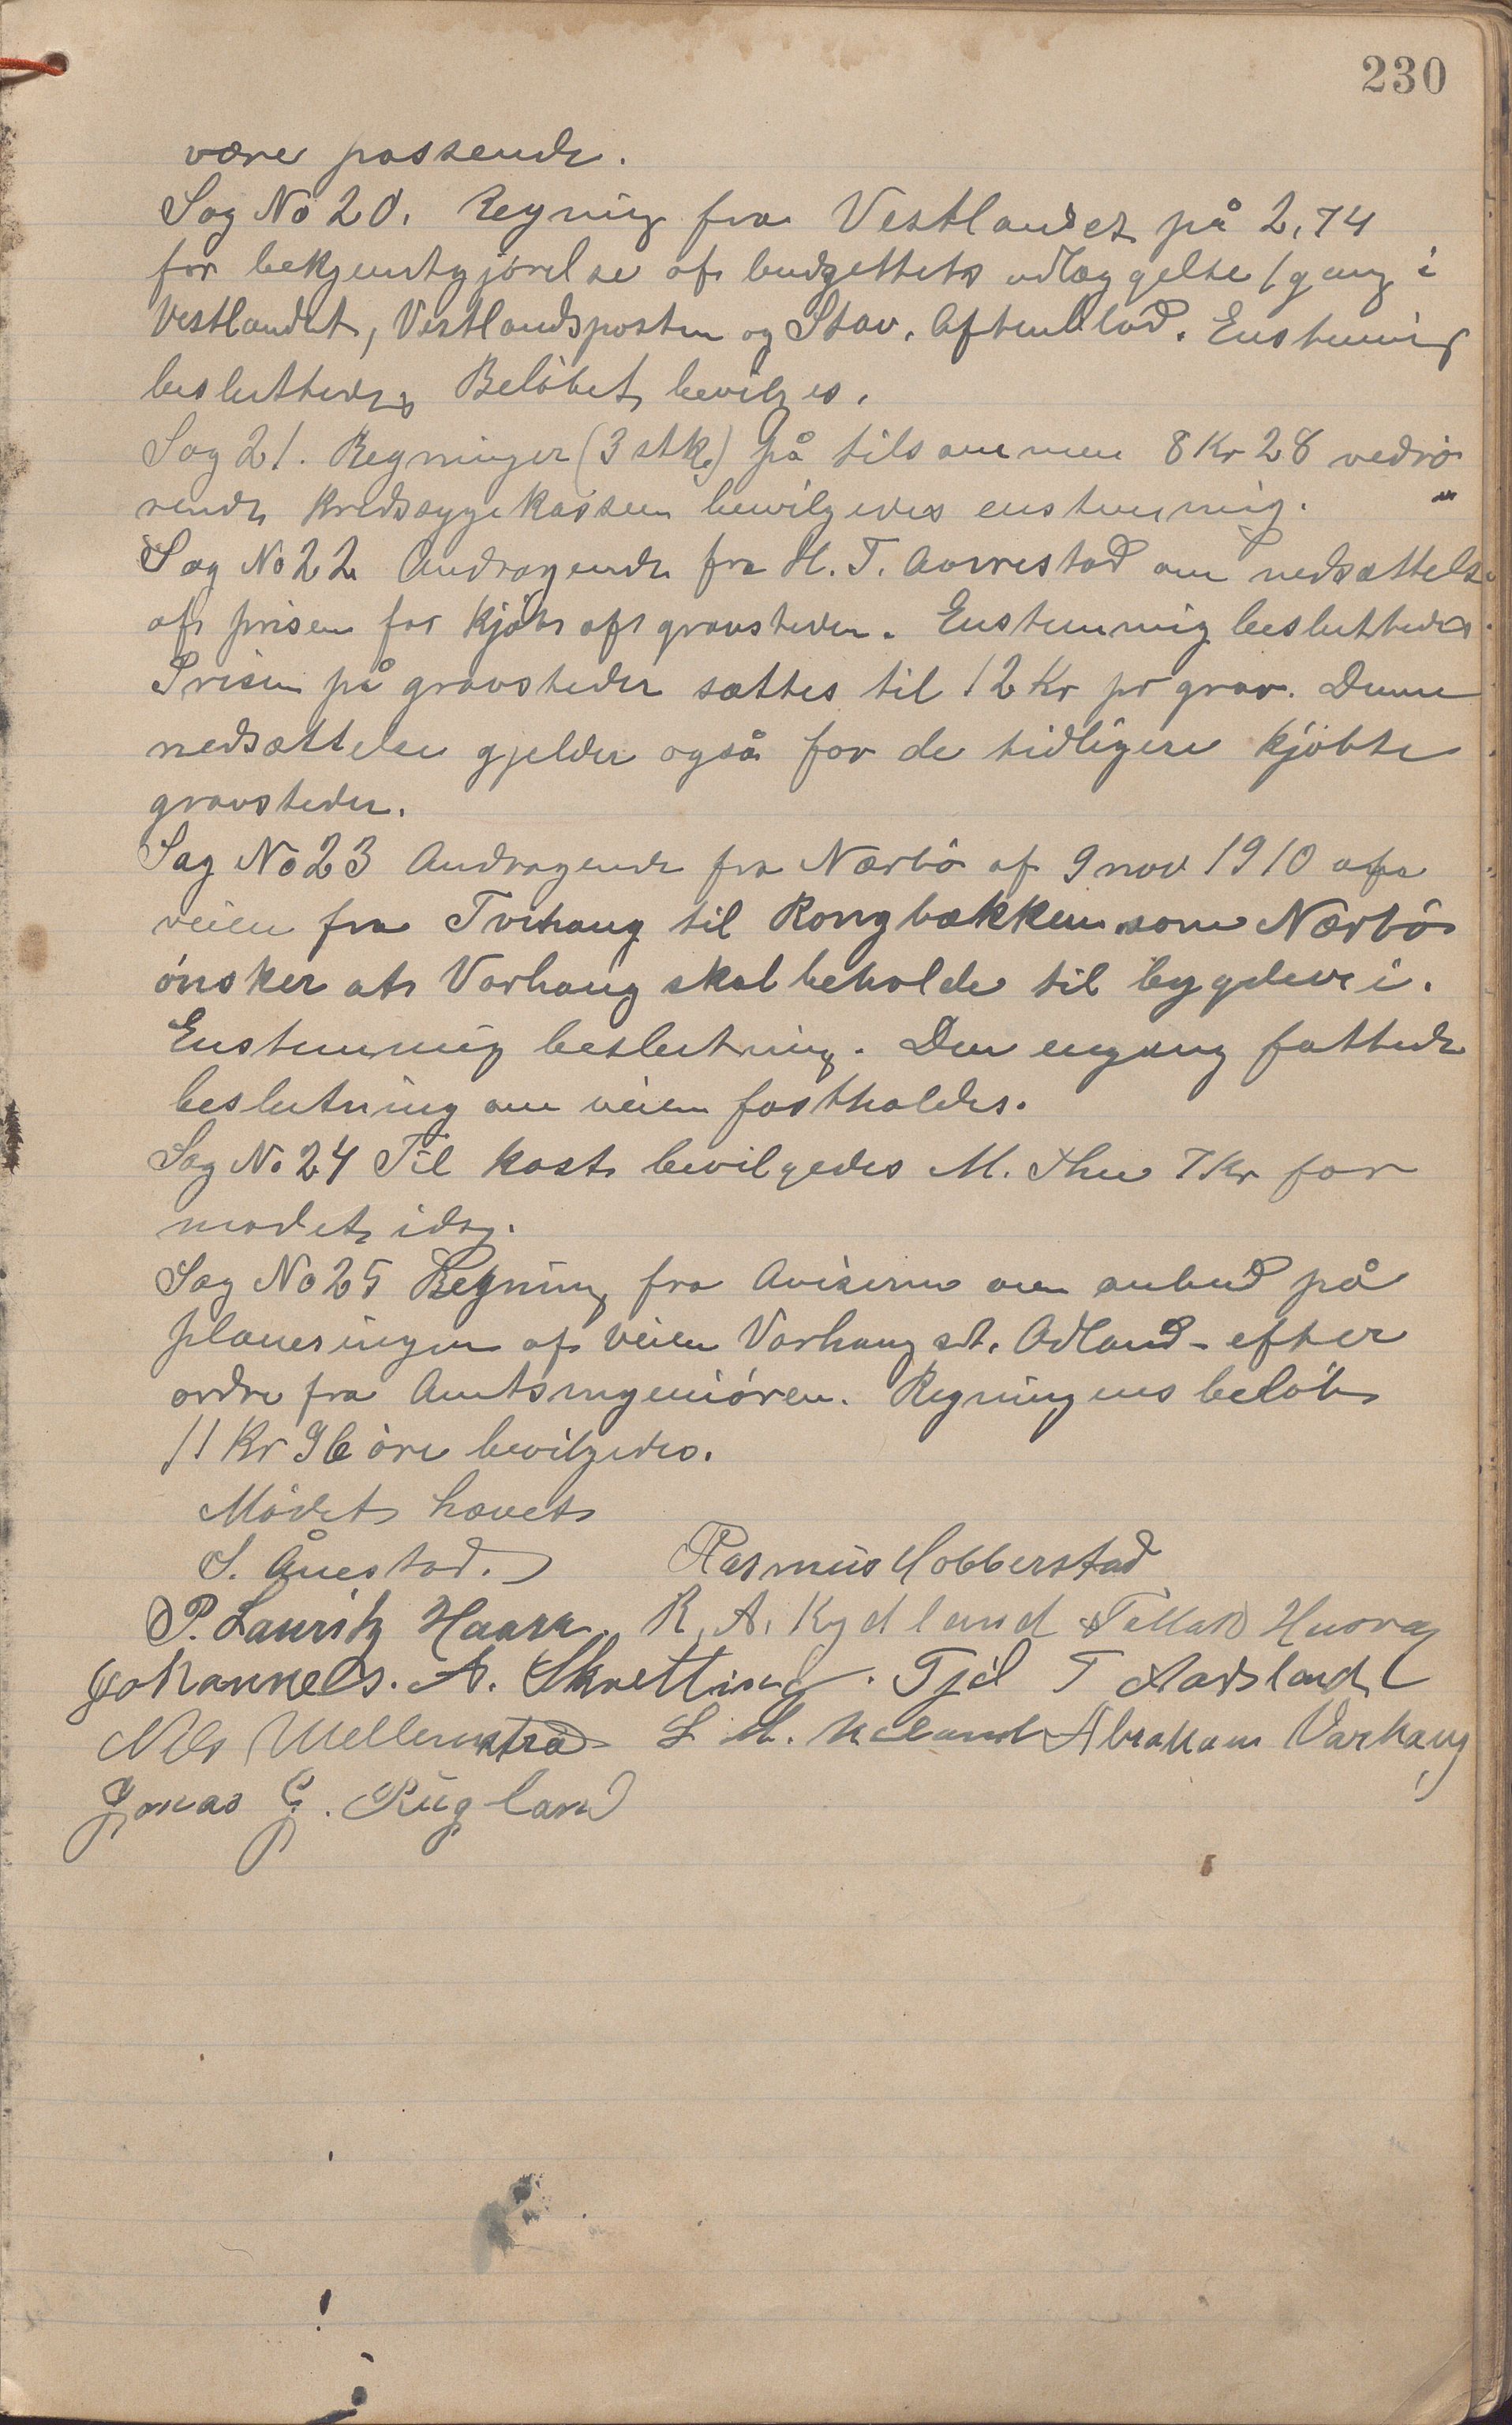 230
være passende.
Sag No 20. Regning fra Vestlandet på 2,74
for bekjendtgjørelse af budgettets udlæggelse 1 gang i
Vestlandet, Vestlandsposten og Stav. Aftenblad. Enstemmig
besluttedes Beløbet bevilges.
Sag 21. Regninger (3 stk.) på tilsammen 8 Kr 28 vedrø-
rende Kredssygekassen bevilgedes enstemmig.
Sag No 22 Andragende fra H. T. Aarrestad om nedsættelse
af prisen for kjøb af gravsteder. Enstemmig besluttedes
Prisen på gravsteder sættes til 12 Kr pr grav. Denne
nedsættelse gjelder også for de tidligere kjøbte
gravsteder.
Sag No 23 Andragende fra Nærbø af 9 nov 1910 af
veien fra Tvihaug til Rongbækken som Nærbø
ønsker at Varhaug skal beholde til bygdevei.
Enstemmig beslutning. Den engang fattede
beslutning om veien fastholdes.
Sag No 24 Til kost bevilgedes M. Thu 7 Kr for
mødet idag.
Sag No 25 Regning fra Aviserne om anbud på
planeringen af veien Varhaug st. Odland - efter
ordre fra Amtsingeniøren. Regningens beløb
11 Kr 96 øre bevilgedes.
Mødet hævet
S. Ånestad. Rasmus Hobberstad
P. Lauritz Haarr. R. A. Rydland Tollak Husvæg
Johannes. A. Skretting. Tjel T Aadsland
Nils Mellemstrad L. M. Ueland Abraham Varhaug
Jonas G. Rugland